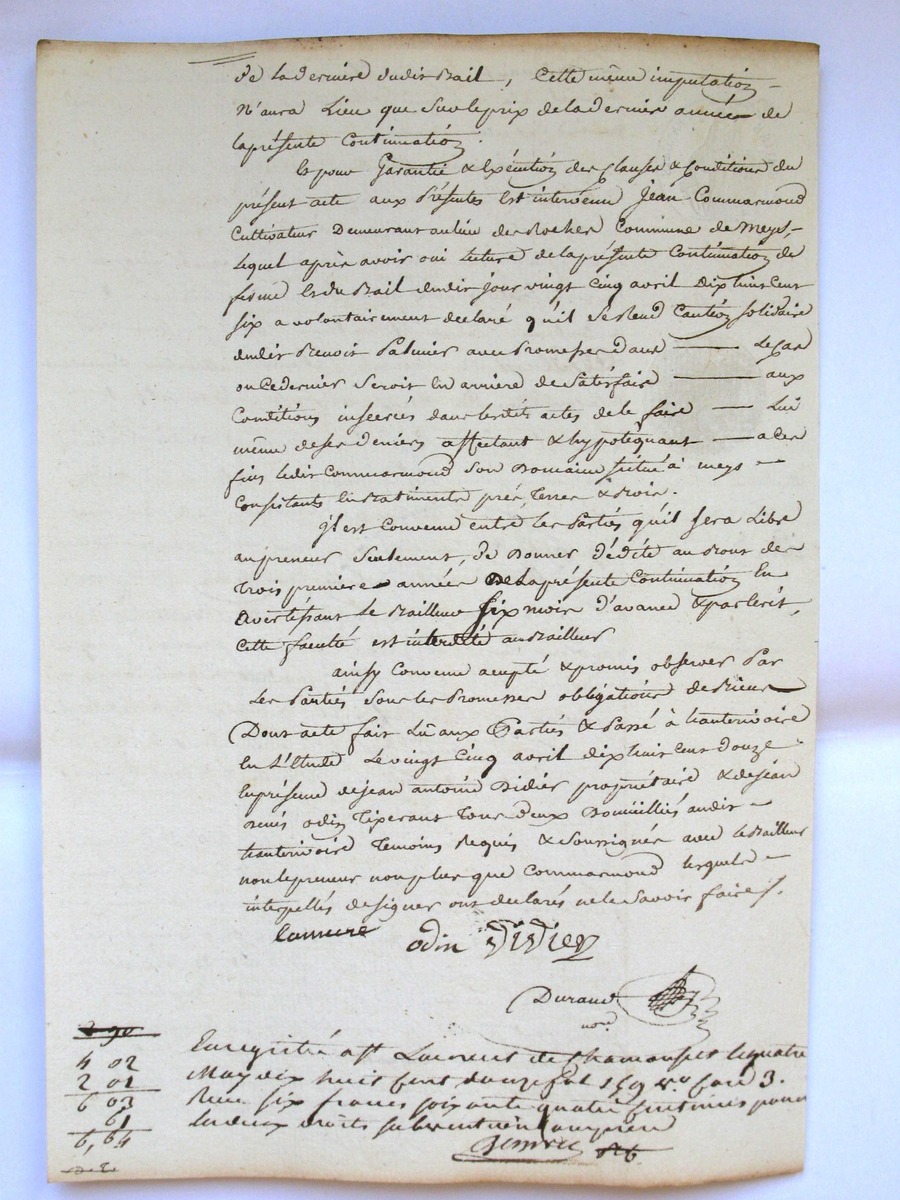 de la derniere dudit Bail, Cette même imputation
N'aura Lieu que Sur le prix de la derniere année de
la présente Continuation.
Et pour Garantie & Exécution des Clauses & Conditions du
présent acte aux Présentes Est intervenu Jean Commarmond
Cultivateur Demeurant au lieu du Rocher Commune de Meys,
Lequel après avoir oui lecture de la présente Continuation de
ferme Et du Bail dudit jour vingt Cinq avril Dix huit Cent
Six a volontairement declaré qu'il Se Rend Caution Solidaire
dudit Benoit Palmier avec Promesse dans Le Cas
ou Ce dernier Seroit En arriere de Satisfaire aux
Conditions inserées dans lesdits actes de le faire Lui
même de Ses Deniers affectant & hypotequant a Ces
fins ledit Commarmond Son Domaine Situé à meys
Consistants En Batiments prés Terres & Bois.
Il est Convenu entre les Parties qu'il Sera Libre
au preneur Seulement, de Donner Dédite au Bout des
Trois premieres années De la présente Continuation En
Avertissant Le Bailleur Six mois d'avance & par Ecrit,
Cette faculté est interdite au Bailleur
ainsy Convenu accepté & promis observer Par
Les Parties Sous les Promesses obligations de Biens
Dont acte fait Lû aux Parties & Passé à hauterivoire
En L'Etude Le vingt Cinq avril dix huit Cent Douze
En présence de jean antoine Didier propriétaire & de jean
odin Tixerant Tous Deux Domiciliés audit
hauterivoire Temoins Requis & Soussignés avec le Bailleur
non le preneur non plus que Commarmond lesquels
interpellés de signer ont declarés ne le Savoir faire /.
Lamure odin Didier
Durand
nore.
Enregistré a St Laurent de Chamousset le quatre
4 02
May dix huit Cent douze fol 159 vo. Case 3.
2 01
Reçu Six francs Soixante quatre Centimes pour
6 03
les deux droits Subvention Comprise
61
6, 64